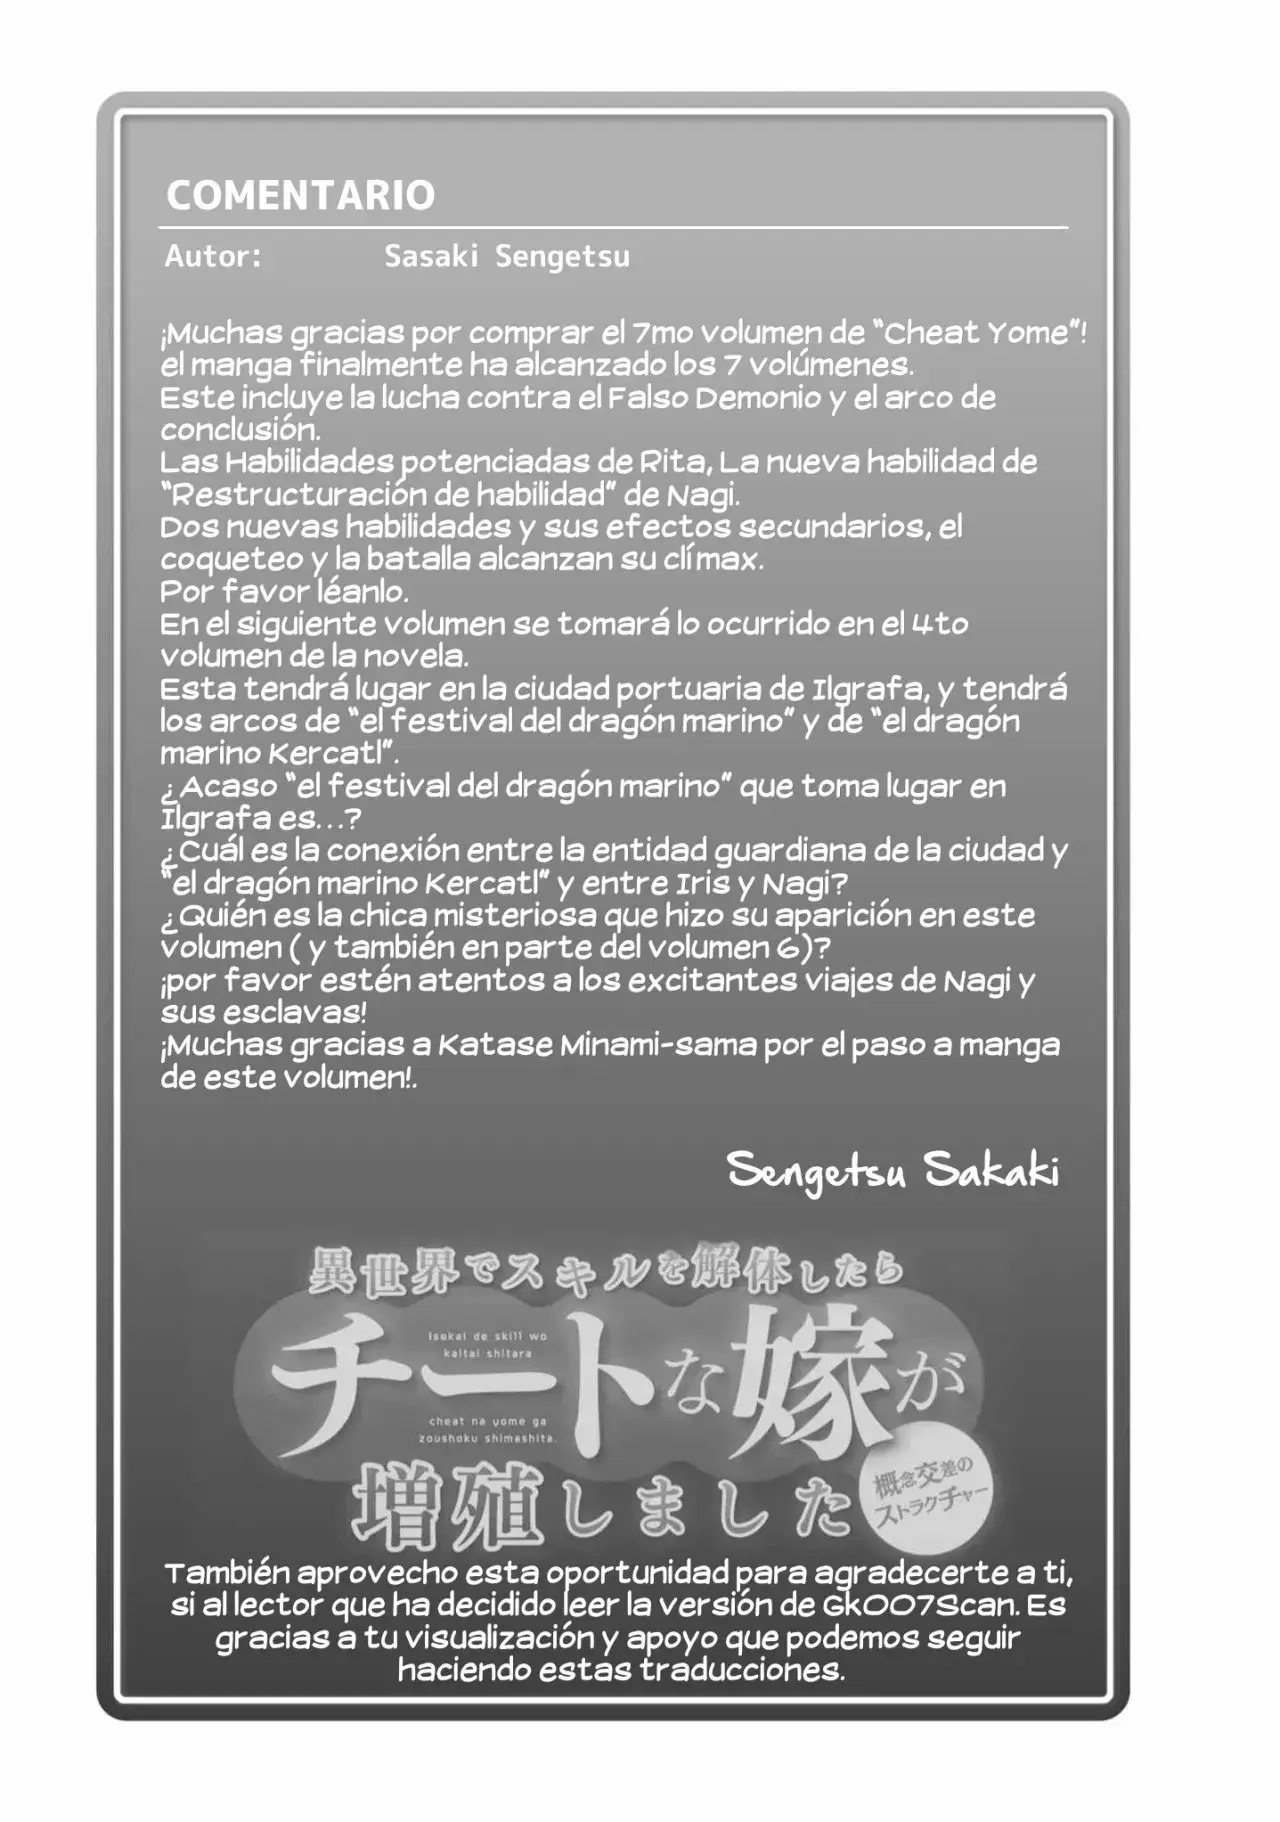 COMENTARIO
Autor: Sasaki Sengetsu
¡Muchas gracias por comprar el 7mo volumen de "Cheat Yome"!
el manga finalmente ha alcanzado los 7 volúmenes.
Este incluye la lucha contra el Falso Demonio y el arco de
conclusión.
Las Habilidades potenciadas de Rita, La nueva habilidad de
"Restructuración de habilidad" de Nagi.
Dos nuevas habilidades y sus efectos secundarios, el
coqueteo y la batalla alcanzan su clímax.
Por favor léanlo.
En el siguiente volumen se tomará lo ocurrido en el 4to
volumen de la novela.
Esta tendrá lugar en la ciudad portuaria de Ilgrafa, y tendrá
los arcos de "el festival del dragón marino" y de "el dragón
marino Kercatl".
¿Acaso "el festival del dragón marino" que toma lugar en
Ilgrafa es...?
¿Cuál es la conexión entre la entidad guardiana de la ciudad y
"el dragón marino Kercatl" y entre Iris y Nagi?
¿Quién es la chica misteriosa que hizo su aparición en este
volumen ( y también en parte del volumen 6)?
¡por favor estén atentos a los excitantes viajes de Nagi y
sus esclavas!
¡Muchas gracias a Katase Minami-sama por el paso a manga
de este volumen!.
Sengetsu Sakaki
異世界でスキルを解体したら
チートな嫁が
isekai de skill wo
kaitai shitara
cheat na yome ga
zoushoku shimashita.
増殖しました
概念交差の
ストラクチャー
También aprovecho esta oportunidad para agradecerte a ti,
si al lector que ha decidido leer la versión de Gk007Scan. Es
gracias a tu visualización y apoyo que podemos seguir
haciendo estas traducciones.